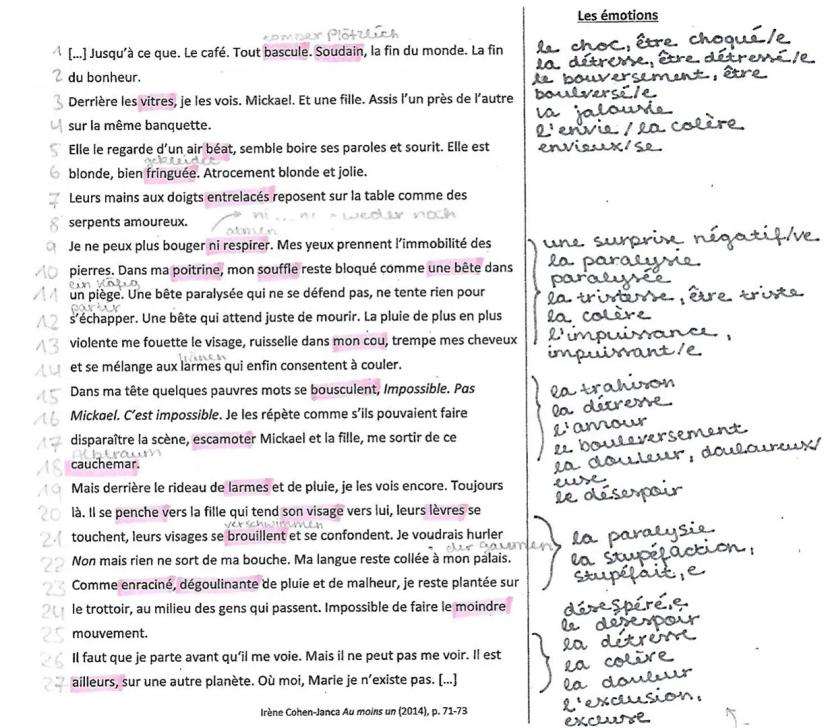 tomber Plötzlich
1 [...] Jusqu'à ce que. Le café. Tout bascule. Soudain, la fin du monde. La fin
2 du bonheur.
3 Derrière les vitres, je les vois. Mickael. Et une fille. Assis l'un près de l'autre
4 sur la même banquette.
5 Elle le regarde d'un air béat, semble boire ses paroles et sourit. Elle est
gekleidet
6 blonde, bien fringuée. Atrocement blonde et jolie.
7 Leurs mains aux doigts entrelacés reposent sur la table comme des
8 serpents amoureux.
ni ... ni = weder noch
atmen
9 Je ne peux plus bouger ni respirer. Mes yeux prennent l'immobilité des
10 pierres. Dans ma poitrine, mon souffle reste bloqué comme une bête dans
ein Käfig
11 un piège. Une bête paralysée qui ne se défend pas, ne tente rien pour
partir
12 s'échapper. Une bête qui attend juste de mourir. La pluie de plus en plus
13 violente me fouette le visage, ruisselle dans mon cou, trempe mes cheveux
Tränen
14 et se mélange aux larmes qui enfin consentent à couler.
15 Dans ma tête quelques pauvres mots se bousculent, Impossible. Pas
16 Mickael. C'est impossible. Je les répète comme s'ils pouvaient faire
17 disparaître la scène, escamoter Mickael et la fille, me sortir de ce
Albtraum
18 cauchemar.
19 Mais derrière le rideau de larmes et de pluie, je les vois encore. Toujours
20 là. Il se penche vers la fille qui tend son visage vers lui, leurs lèvres se
verschwimmen
21 touchent, leurs visages se brouillent et se confondent. Je voudrais hurler
der gaumen
22 Non mais rien ne sort de ma bouche. Ma langue reste collée à mon palais.
23 Comme enraciné, dégoulinante de pluie et de malheur, je reste plantée sur
24 le trottoir, au milieu des gens qui passent. Impossible de faire le moindre
25 mouvement.
26 Il faut que je parte avant qu'il me voie. Mais il ne peut pas me voir. Il est
27 ailleurs, sur une autre planète. Où moi, Marie je n'existe pas. [...]
Irène Cohen-Janca Au moins un (2014), p. 71-73
Les émotions
le choc, être choqué/e
la détresse, être détressé/e
le bouversement, être
boulversé/e
la jalousie
l'envie / la colère
envieux/se
une surprise négatif/ve
la paralysie
paralysée
la tristesse, être triste
la colère
l'impuissance,
impuissant/e
la trahison
la détresse
l'amour
le bouleversement
la douleur, douloureux/
euse
le désespoir
la paralysie
la stupéfaction,
stupéfait,e
désespéré,e
le desespoir
la détresse
la colère
la douleur
l'exclusion,
excluse